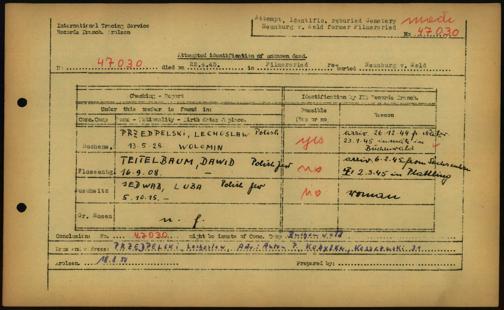 International Tracing Service
Records Branch, Arolsen
Attempt. Identific. reburied Cemetery
Neunburg v. Wald former Filmersried
No 47030
Attempted identification of unknown dead.
No. 47030 died on 22.4.45. in Filmersried re-buried Neunburg v. Wald
Checking - Report
Identification by ITS Records Branch.
Under this number is found in:
Possible
Yes or no
Reason
Conc.Camp Name - Nationality - Birth dates & place.
PRZEDPELSKI, LECHOSLAW Polish
13.5.26 WOLOMIN
yes
arriv. 26.12.44 fr.
23.1.45 inmate in
Buchenwald
Flossenbg.
TEITELBAUM, DAWID Polish Jew
16.9.08. —
no
arriv. 6.2.45 from
2.3.45 in Plattling
Auschwitz
SEDWAB, LUBA Polish Jew
5.10.15. —
no
woman
Gr. Rosen
n. f.
Conclusion: No. 47030 might be inmate of Conc. Camp
PRZEDPELSKI Lechoslaw,
Arolsen,
Prepared by: